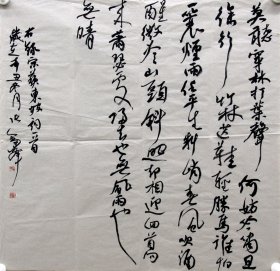 莫聽穿林打葉聲何妨吟嘯且
徐行竹杖芒鞋輕勝馬誰怕
一蓑煙雨任平生料峭春風吹酒
醒微冷山頭斜照卻相迎回首向
來蕭瑟處歸去也無風雨也
無晴
宋蘇東坡詞一首